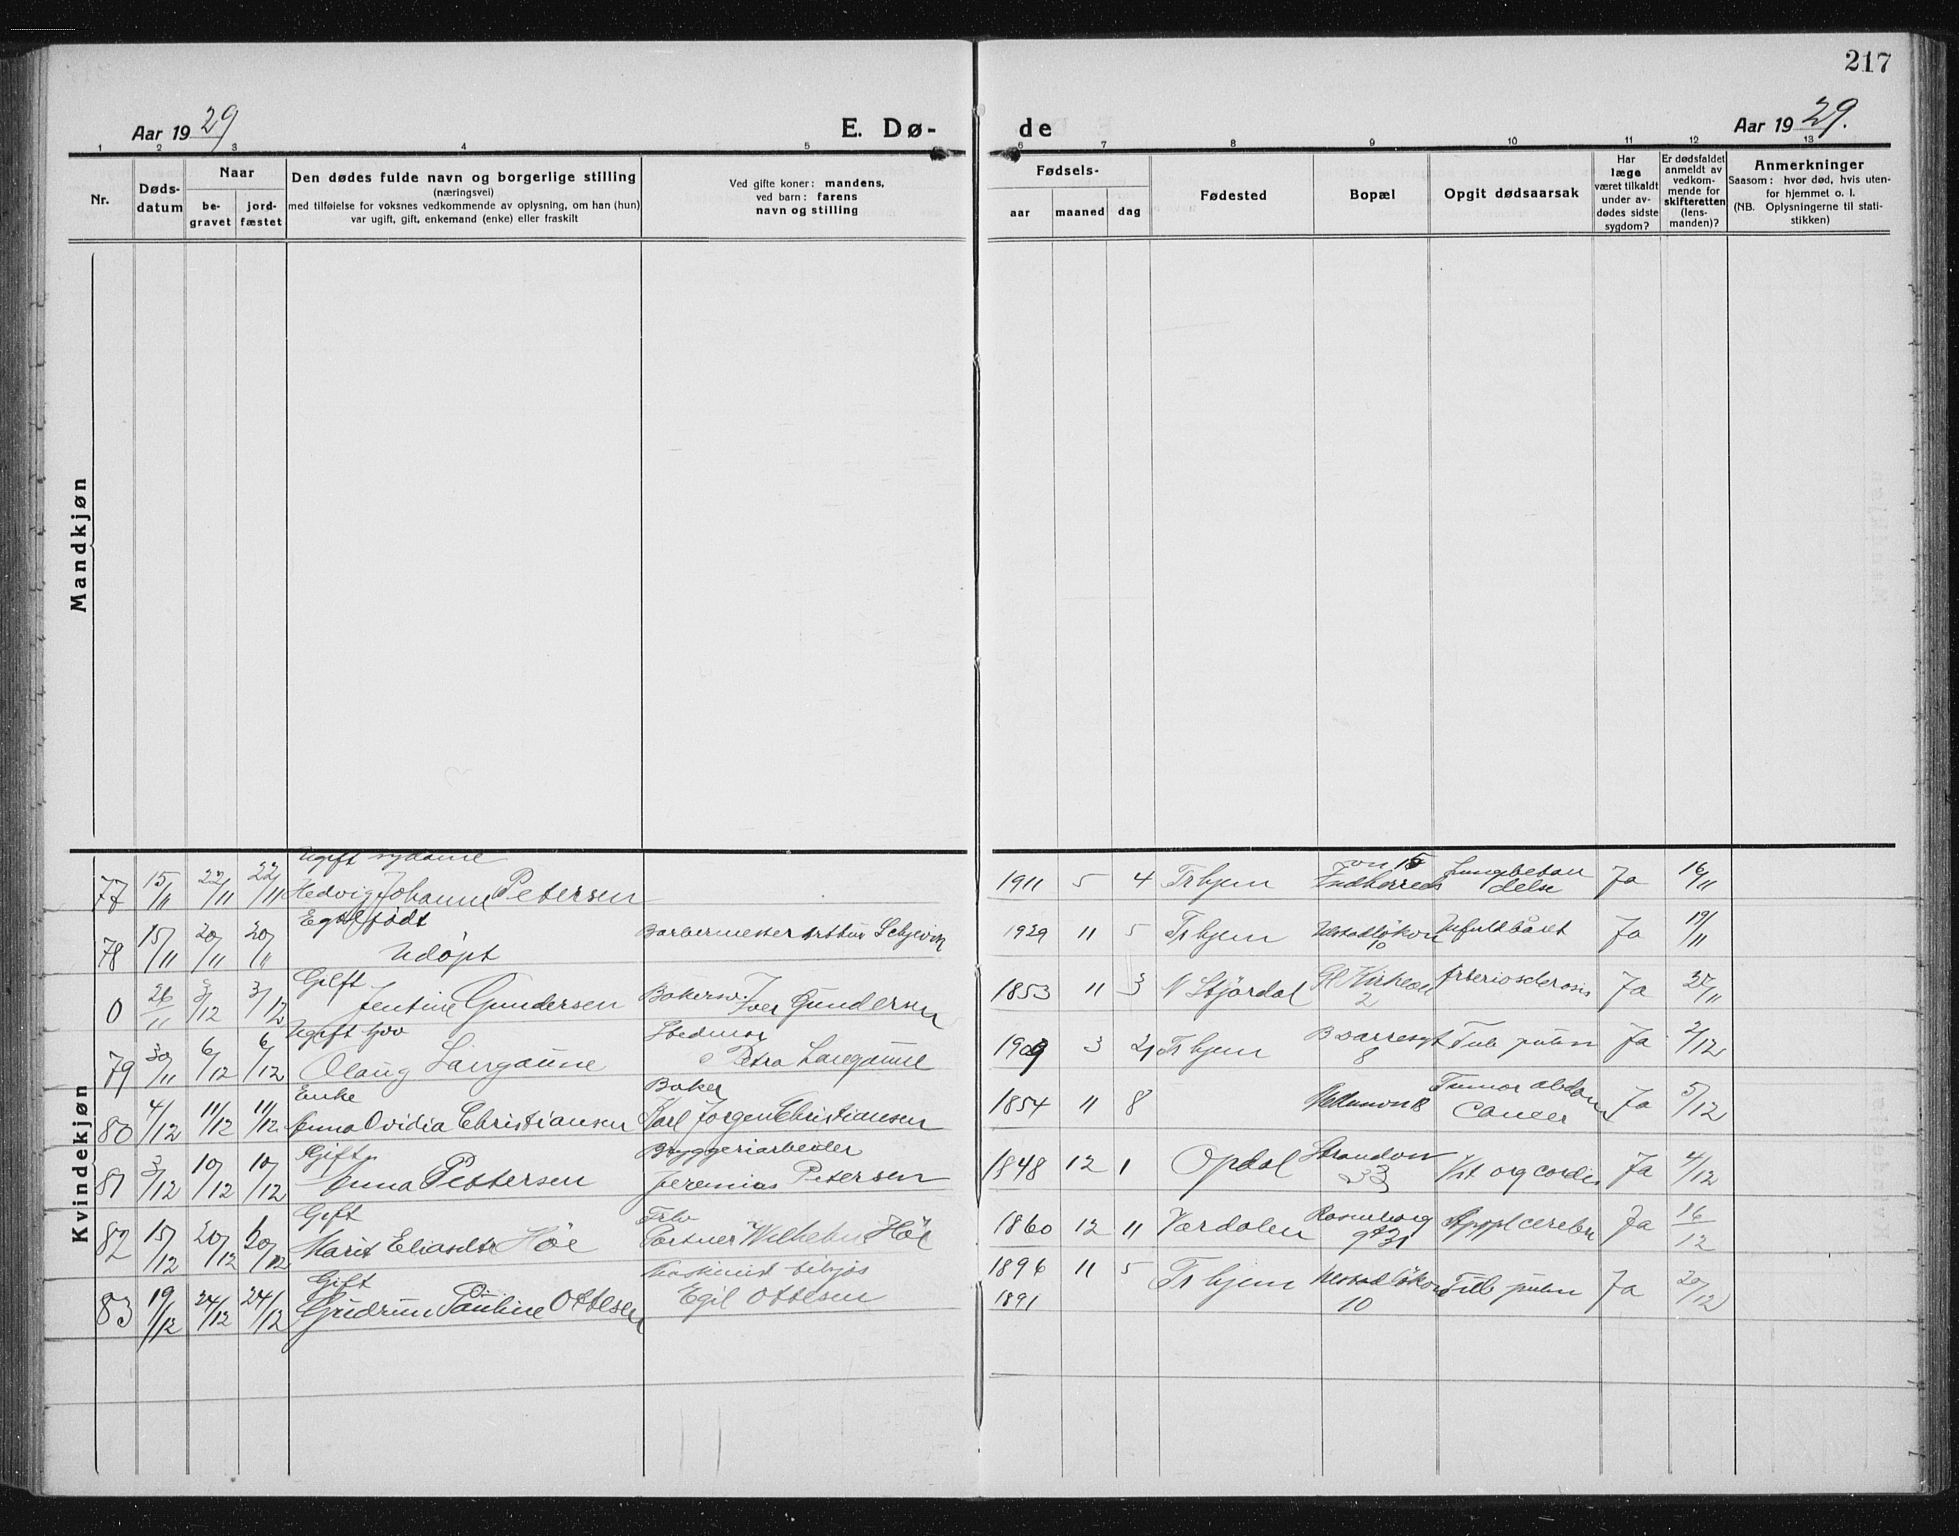 217
Aar 1929
E. Dø-
de
Aar 1929.
1 2 3 4 5 6 7 8 9 10 11 12 13
Nr.
Døds-
datum
Naar
be-
gravet
jord-
fæstet
Den dødes fulde navn og borgerlige stilling
(næringsvei)
med tilføielse for voksnes vedkommende av oplysning, om han (hun)
var ugift, gift, enkemand (enke) eller fraskilt
Ved gifte koner: mandens,
ved barn: farens
navn og stilling
Fødsels-
aar maaned dag
Fødested
Bopæl
Opgit dødsaarsak
Har
læge
været tilkaldt
under av-
dødes sidste
sygdom?
Er dødsfaldet
anmeldt av
vedkom-
mende for
skifteretten
(lens-
manden)?
Anmerkninger
Saasom: hvor død, hvis uten-
for hjemmet o. l.
(NB. Oplysningerne til stati-
stikken)
Mandkjøn
Kvindekjøn
Ugift sydame
77 15/11 22/11 22/11 Hedvig Johanne Petersen 1911 5 4 Trhjem 15 Ja 16/11
Egte født
78 15/11 20/11 20/11 Udøpt Barbermester Arthur 1929 11 5 Trhjem 10 Ufuldbåret Ja 19/11
Gift
0 26/11 3/12 3/12 Jentine Gundersen Iver Gundersen 1853 11 3 N Stjördal 2 Arteriosclerosis Ja 27/11
Ugift
79 30/11 6/12 6/12 Olaug Langaune Petra Langaune 1909 3 21 Trhjem 8 Tub pulm Ja 2/12
Enke Baker
80 4/12 11/12 11/12 Anna Ovidia Christiansen Karl Jörgen Christiansen 1854 11 8 Tumor abdom Cancer Ja 5/12
Gift Bryggeriarbeider
81 3/12 10/12 10/12 Anna Pettersen Jeremias Petersen 1848 12 1 Opdal Strandvn 33 Vit org cordis Ja 4/12
Gift
82 15/12 20/12 20/12 Marit Eliasdtr Höe Portner Wilhelm Höe 1860 12 11 Værdalen Rosenborg gt 31 Appl cerebr Ja 16/12
Gift
83 19/12 24/12 24/12 Gudrun Pauline Ottesen Egil Ottesen 1896 11 5 Trhjem 10 Tub pulm Ja 20/12
1891